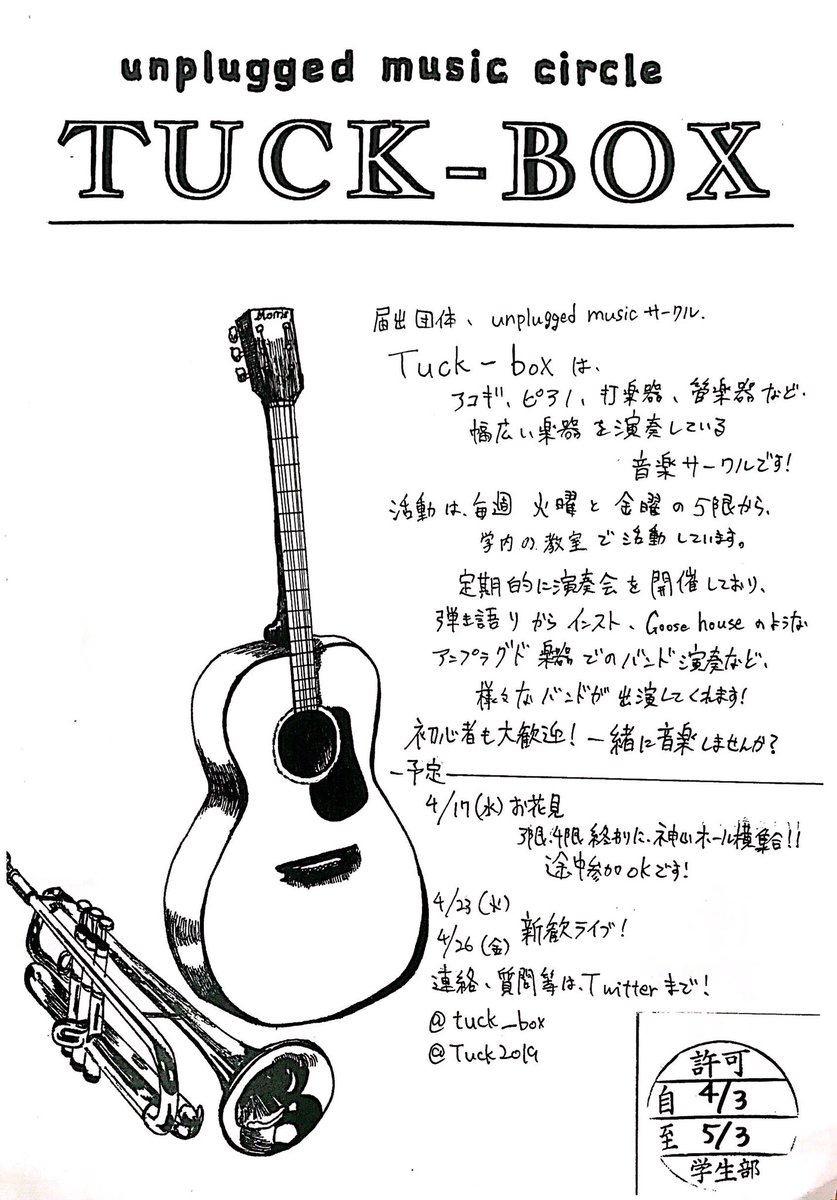 unplugged music circle
TUCK-BOX
Morris
届出団体、unplugged musicサークル.
Tuck-box は、
アコギ、ピアノ、打楽器、管楽器など.
幅広い楽器を演奏している
音楽サークルです!
活動は、毎週 火曜と金曜の5限から、
学内の教室で活動しています。
定期的に演奏会を開催しており、
弾き語りからインスト、Goose houseのような
アンプラグド楽器でのバンド演奏など、
様々なバンドが出演してくれます!
初心者も大歓迎! 一緒に音楽しませんか?
予定
4/17(水)お花見
3限,4限終わりに、神山ホール横集合!!
途中参加okです!
4/23(火)
4/26(金) 新歓ライブ!
連絡、質問等は、Twitterまで!
@tuck_box
@Tuck2019
許可
自 4/3
至 5/3
学生部